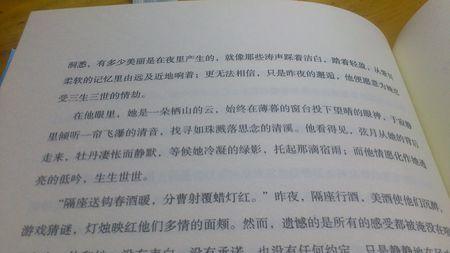 洞悉，有多少美丽是在夜里产生的，就像那些涛声踩着洁白，踏着轻盈，从
柔软的记忆里由远及近地响着；更无法相信，只是昨夜的邂逅，他便愿意为她
受三生三世的情劫。
在他眼里，她是一朵栖山的云，始终在薄暮的窗台投下望晴的眼神，于寂静
里倾听一帘飞瀑的清音，找寻如珠溅落思念的清溪。他看得见，弦月从她的背后
走来，牡丹凄怅而静默，等候她冷凝的绿影，托起那滴宿雨；而他情愿化作她透
亮的低吟，生生世世。
“隔座送钩春酒暖，分曹射覆蜡灯红。”昨夜，隔座行酒，美酒使他们沉醉，
游戏猜谜，灯烛映红他们多情的面颊。然而，遗憾的是所有的感受都被淹没在
没有表白，没有承诺，也没有任何约定，只是静静地